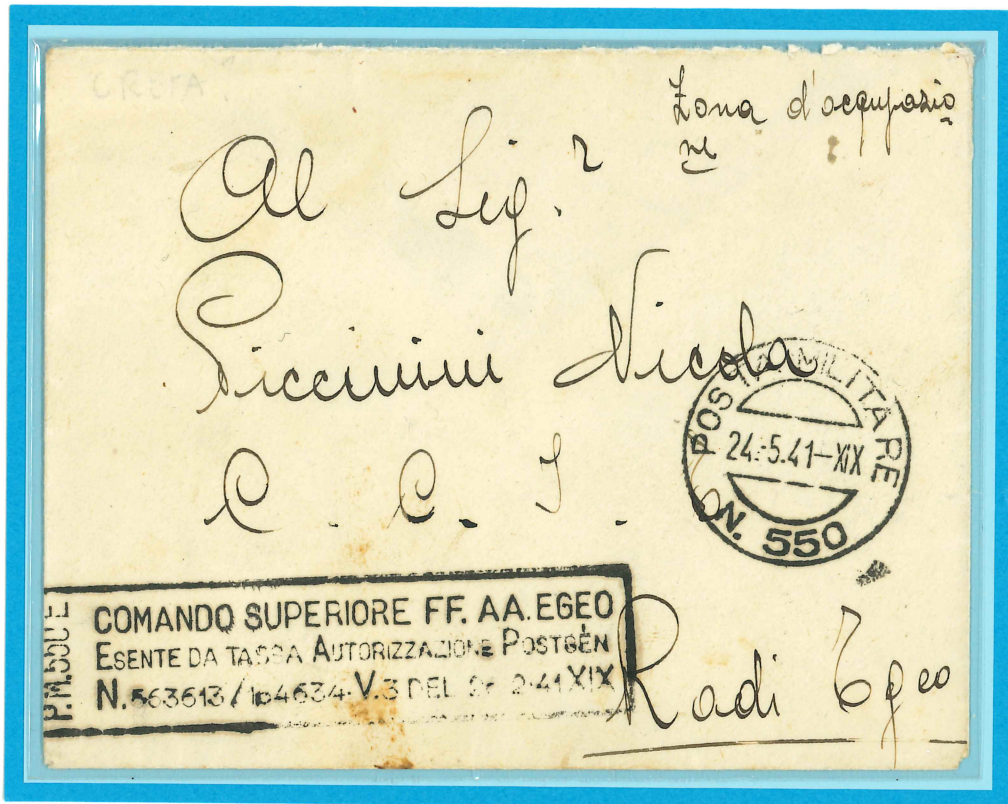 CRETA?
Zona d'occupazio
ne
Al Sig.r
Piccinini Nicola
C. C. I.
POSTA MILITARE
24.-5.41-XIX
N. 550
P.M. 550 E
COMANDO SUPERIORE FF. AA. EGEO
ESENTE DA TASSA AUTORIZZAZIONE POSTGEN
N. 563613/104634.V.3 DEL 2-41 XIX
Rodi Egeo